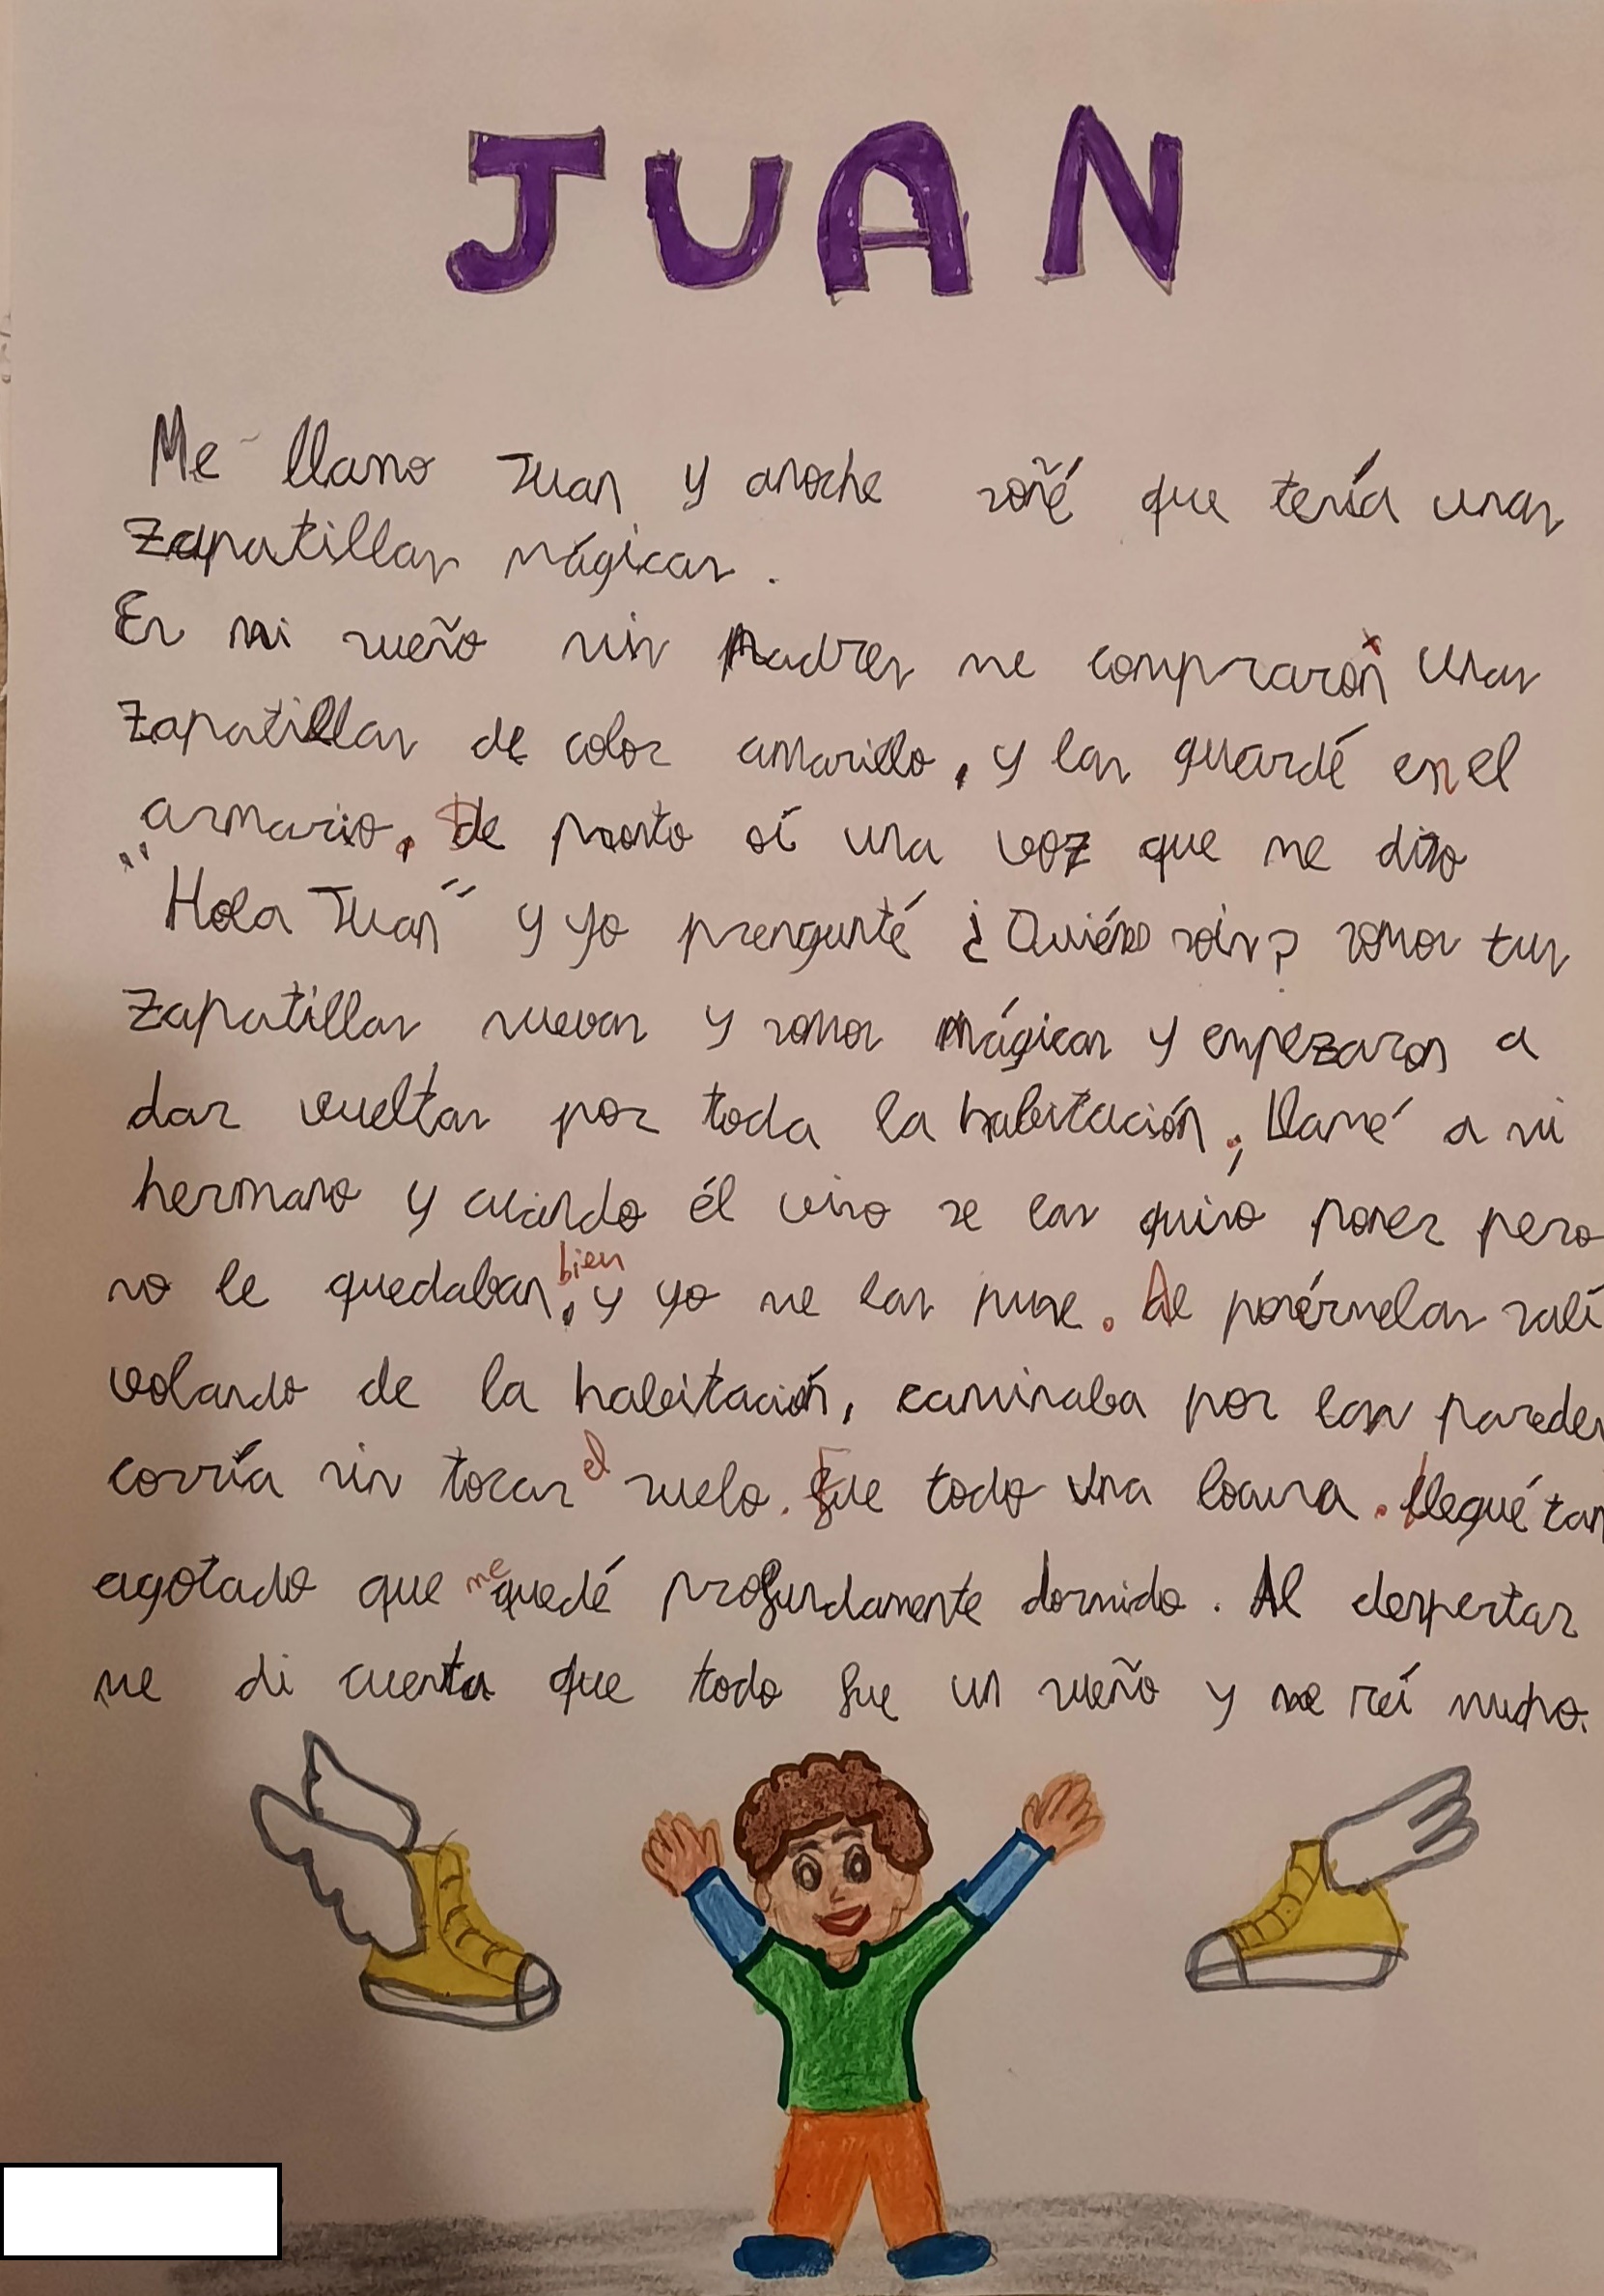 JUAN
Me llamo Juan y anoche soñé que tenía unas
zapatillas mágicas.
En mi sueño mis Padres me compraron unas
zapatillas de color amarillo, y las guardé en el
armario. De pronto oí una voz que me dijo
"Hola Juan" y yo prengunté ¿Quiénes sois? somos tus
zapatillas nuevas y somos mágicas y empezaron a
dar vueltas por toda la habitación, Llamé a mi
hermano y cuando él vino se las quiso poner pero
no le quedaban bien, y yo me las puse. Al ponérmelas salí
volando de la habitación, caminaba por las paredes
corría sin tocar el suelo. Fue todo una locura. Llegué tan
agotado que me quedé profundamente dormido. Al despertar
me di cuenta que todo fue un sueño y me reí mucho.